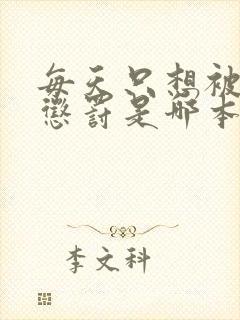 每天只想被
惩罚是哪本
李文科